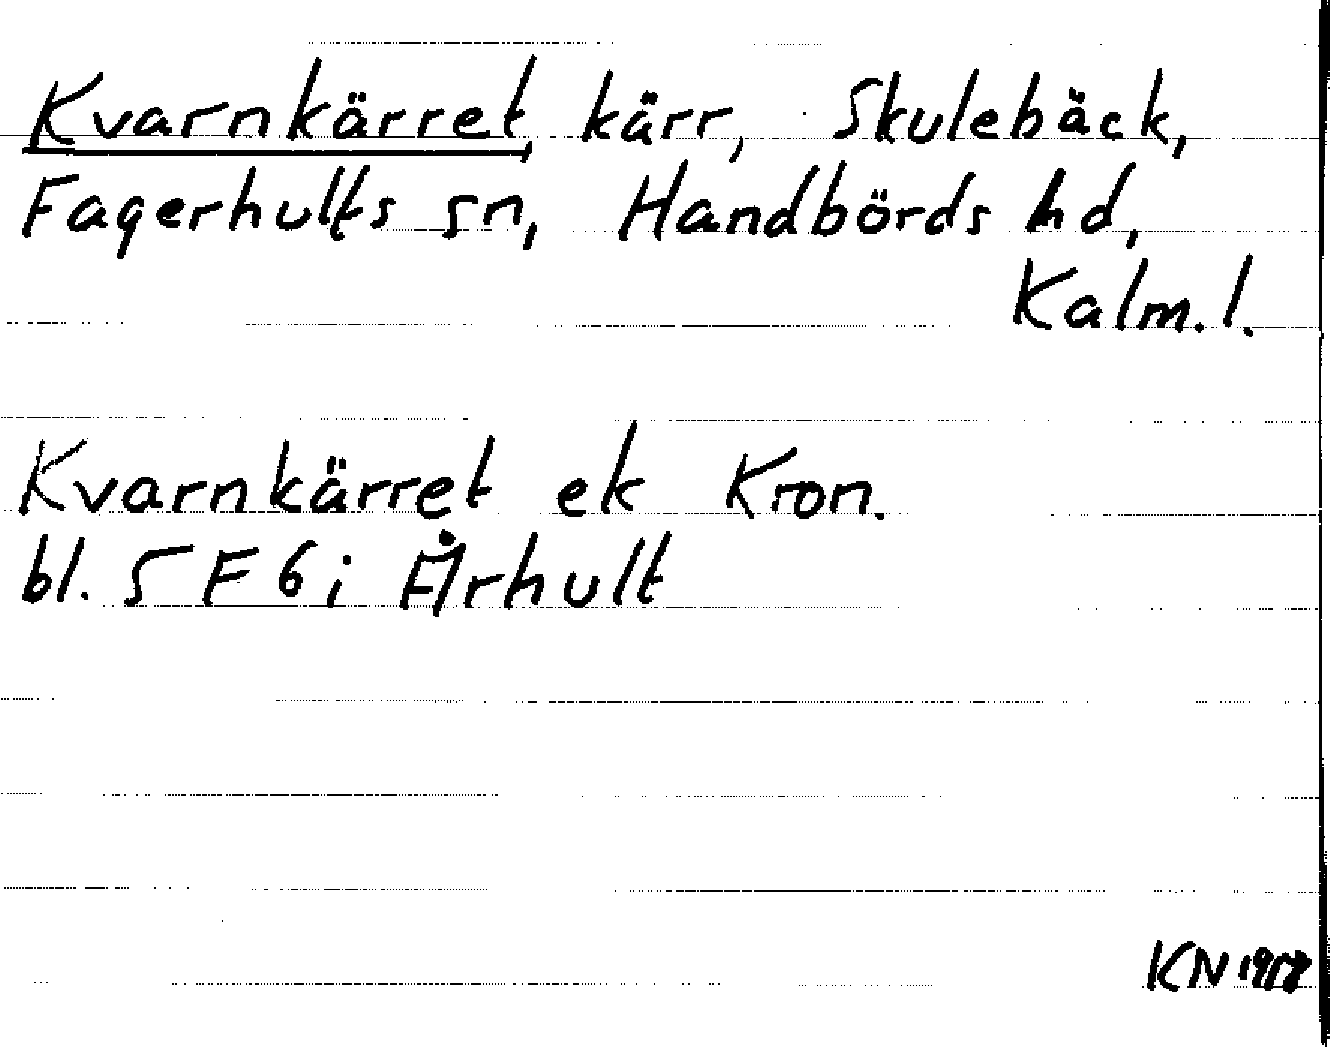 Kvarnkärret, kärr, Skulebäck,
Fagerhults sn, Handbörds hd,
Kalm. l.
Kvarnkärret ek Kron.
bl. 5 F 6 i Århult
KN